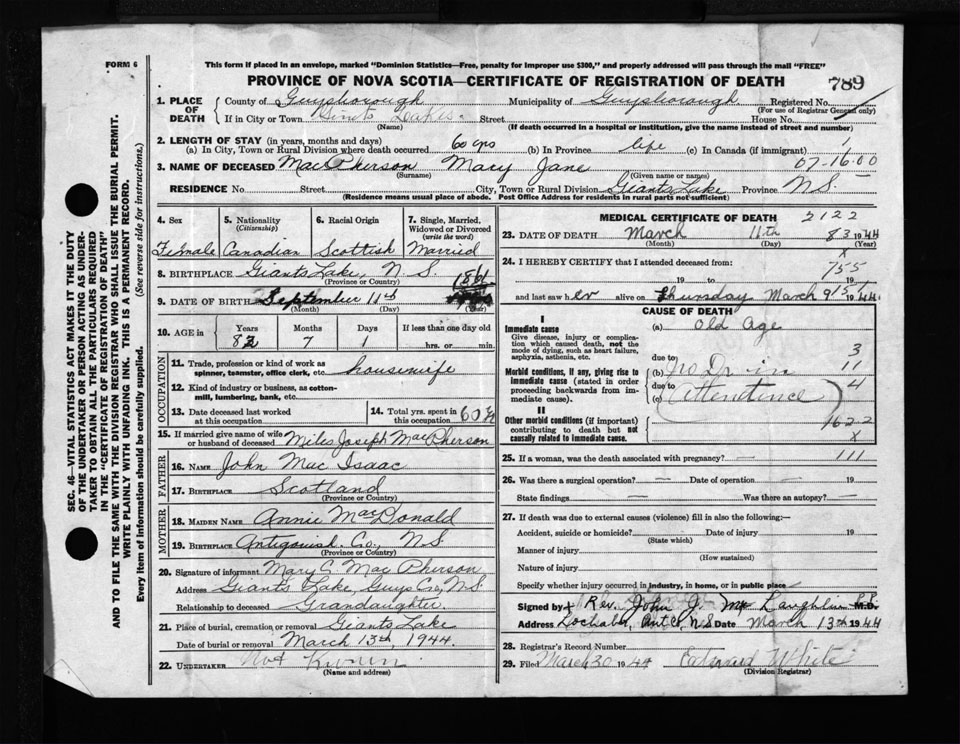 FORM 6
This form if placed in an envelope, marked "Dominion Statistics—Free, penalty for improper use $300," and properly addressed will pass through the mail "FREE"
PROVINCE OF NOVA SCOTIA—CERTIFICATE OF REGISTRATION OF DEATH
789
1. PLACE OF DEATH
County of Guysborough Municipality of Guysborough Registered No.
(For use of Registrar General only)
If in City or Town Street House No.
(Name) (If death occurred in a hospital or institution, give the name instead of street and number)
2. LENGTH OF STAY (in years, months and days)
(a) In City, Town or Rural Division where death occurred 60 yrs (b) In Province life (c) In Canada (if immigrant)
07-16-00
3. NAME OF DECEASED MacPherson Mary Jane
(Surname) (Given name or names)
RESIDENCE No. Street City, Town or Rural Division Giants Lake Province N.S.
(Residence means usual place of abode. Post Office Address for residents in rural parts not sufficient)
4. Sex Female
5. Nationality (Citizenship) Canadian
6. Racial Origin Scottish
7. Single, Married, Widowed or Divorced (write the word) Married
8. BIRTHPLACE Giants Lake, N.S.
(Province or Country)
1861
9. DATE OF BIRTH September 11th
(Month) (Day) (Year)
10. AGE in Years Months Days If less than one day old
82 7 1 hrs. or min.
OCCUPATION
11. Trade, profession or kind of work as spinner, teamster, office clerk, etc. housewife
12. Kind of industry or business, as cotton-mill, lumbering, bank, etc.
13. Date deceased last worked at this occupation
14. Total yrs. spent in this occupation
15. If married give name of wife or husband of deceased Miles Joseph MacPherson
FATHER
16. NAME John Mac Isaac
17. BIRTHPLACE Scotland
(Province or Country)
MOTHER
18. MAIDEN NAME Annie MacDonald
19. BIRTHPLACE Antigonish Co., N.S.
(Province or Country)
20. Signature of informant Mary C. MacPherson
Address Giants Lake, Guys Co, N.S.
Relationship to deceased Grandaughter
21. Place of burial, cremation or removal Giants Lake
Date of burial or removal March 13th, 1944.
22. UNDERTAKER Not Known
(Name and address)
MEDICAL CERTIFICATE OF DEATH
2122
23. DATE OF DEATH March 11th 1944
(Month) (Day) (Year)
24. I HEREBY CERTIFY that I attended deceased from:
755
19 to 19
and last saw her alive on Thursday March 9 1944
CAUSE OF DEATH
I
Immediate cause
Give disease, injury or complication which caused death, not the mode of dying, such as heart failure, asphyxia, asthenia, etc.
(a) Old Age
due to
Morbid conditions, if any, giving rise to immediate cause (stated in order proceeding backwards from immediate cause).
(b) No Dr in
due to
(c) attendence
3
11
4
II
Other morbid conditions (if important) contributing to death but not causally related to immediate cause.
162-2
X
25. If a woman, was the death associated with pregnancy? 111
26. Was there a surgical operation? Date of operation 19
State findings Was there an autopsy?
27. If death was due to external causes (violence) fill in also the following:—
Accident, suicide or homicide? Date of injury 19
(State which)
Manner of injury
(How sustained)
Nature of injury
Specify whether injury occurred in industry, in home, or in public place
Signed by x Rev. John J. McLaughlin P.P. M.D.
Address Lochaber, Ant Co N.S Date March 13th 1944
28. Registrar's Record Number
29. Filed March 30 1944 Edward White
(Division Registrar)
SEC. 46—VITAL STATISTICS ACT MAKES IT THE DUTY
OF THE UNDERTAKER OR PERSON ACTING AS UNDERTAKER TO OBTAIN ALL THE PARTICULARS REQUIRED
IN THE "CERTIFICATE OF REGISTRATION OF DEATH"
AND TO FILE THE SAME WITH THE DIVISION REGISTRAR WHO SHALL ISSUE THE BURIAL PERMIT.
WRITE PLAINLY WITH UNFADING INK. THIS IS A PERMANENT RECORD.
Every item of information should be carefully supplied. (See reverse side for instructions.)